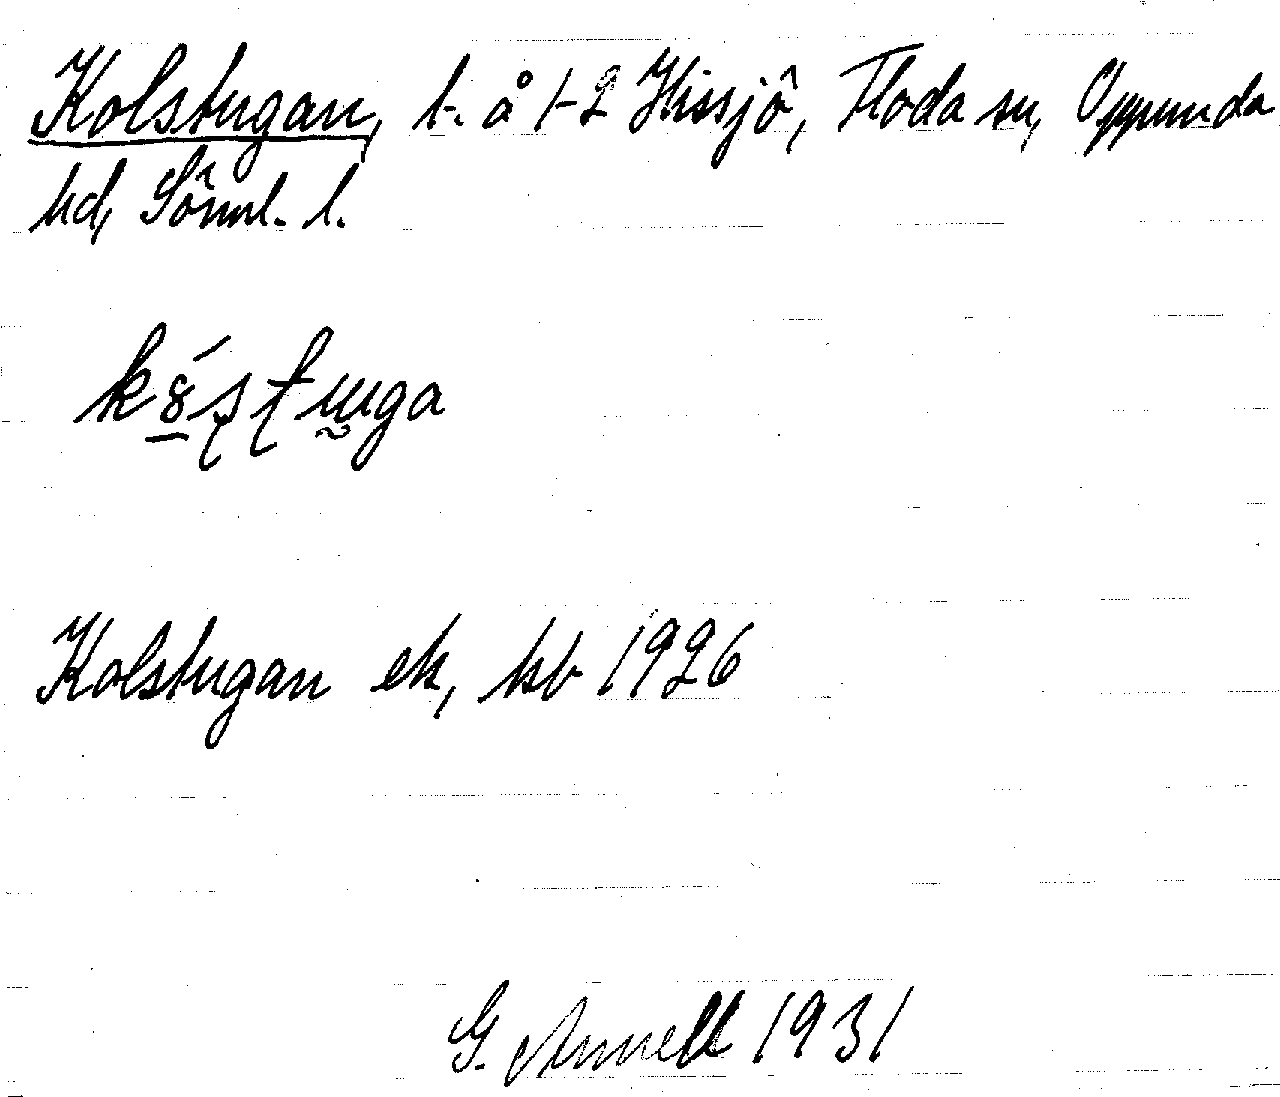 Kolstugan, t. å 1-2 Hissjö, Floda sn, Oppunda
hd, Söml. l.
Kolstugan ek, kb 1926
G. Annell 1931